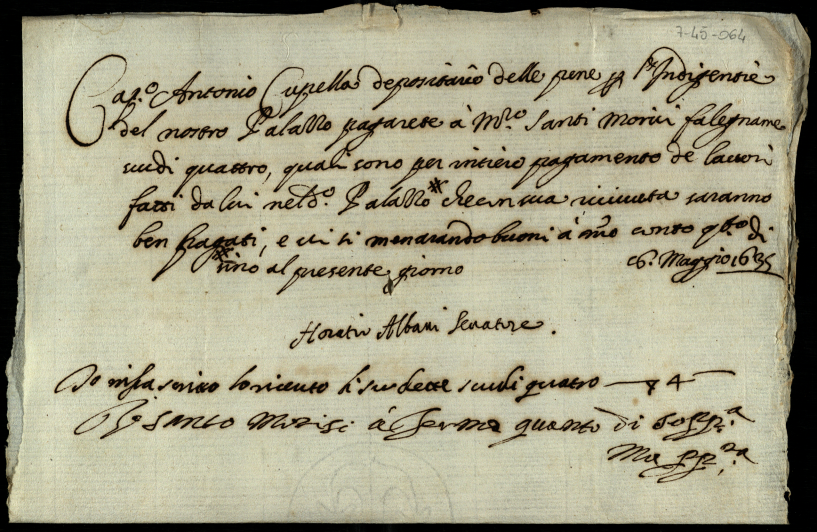 7-45-064
Cap.º Antonio Cupella depositario delle pene pp l'Indigentie
del nostro Palazzo pagarete à Mro. Santi Morici falegname
scudi quattro, quali sono per intiero pagamento de lavori
fatti da lui nel dº. Palazzo # che con sua ricivuta saranno
ben pagati, e vi si menarando buoni à mio conto qsto di
# sino al presente giorno 6. Maggio 1635
Horatio Albani Senatore.
Io infrascritto ho ricevuto li sudette scudi quatro — 4 —
Io Santo Morici à fermo quanto di sopra